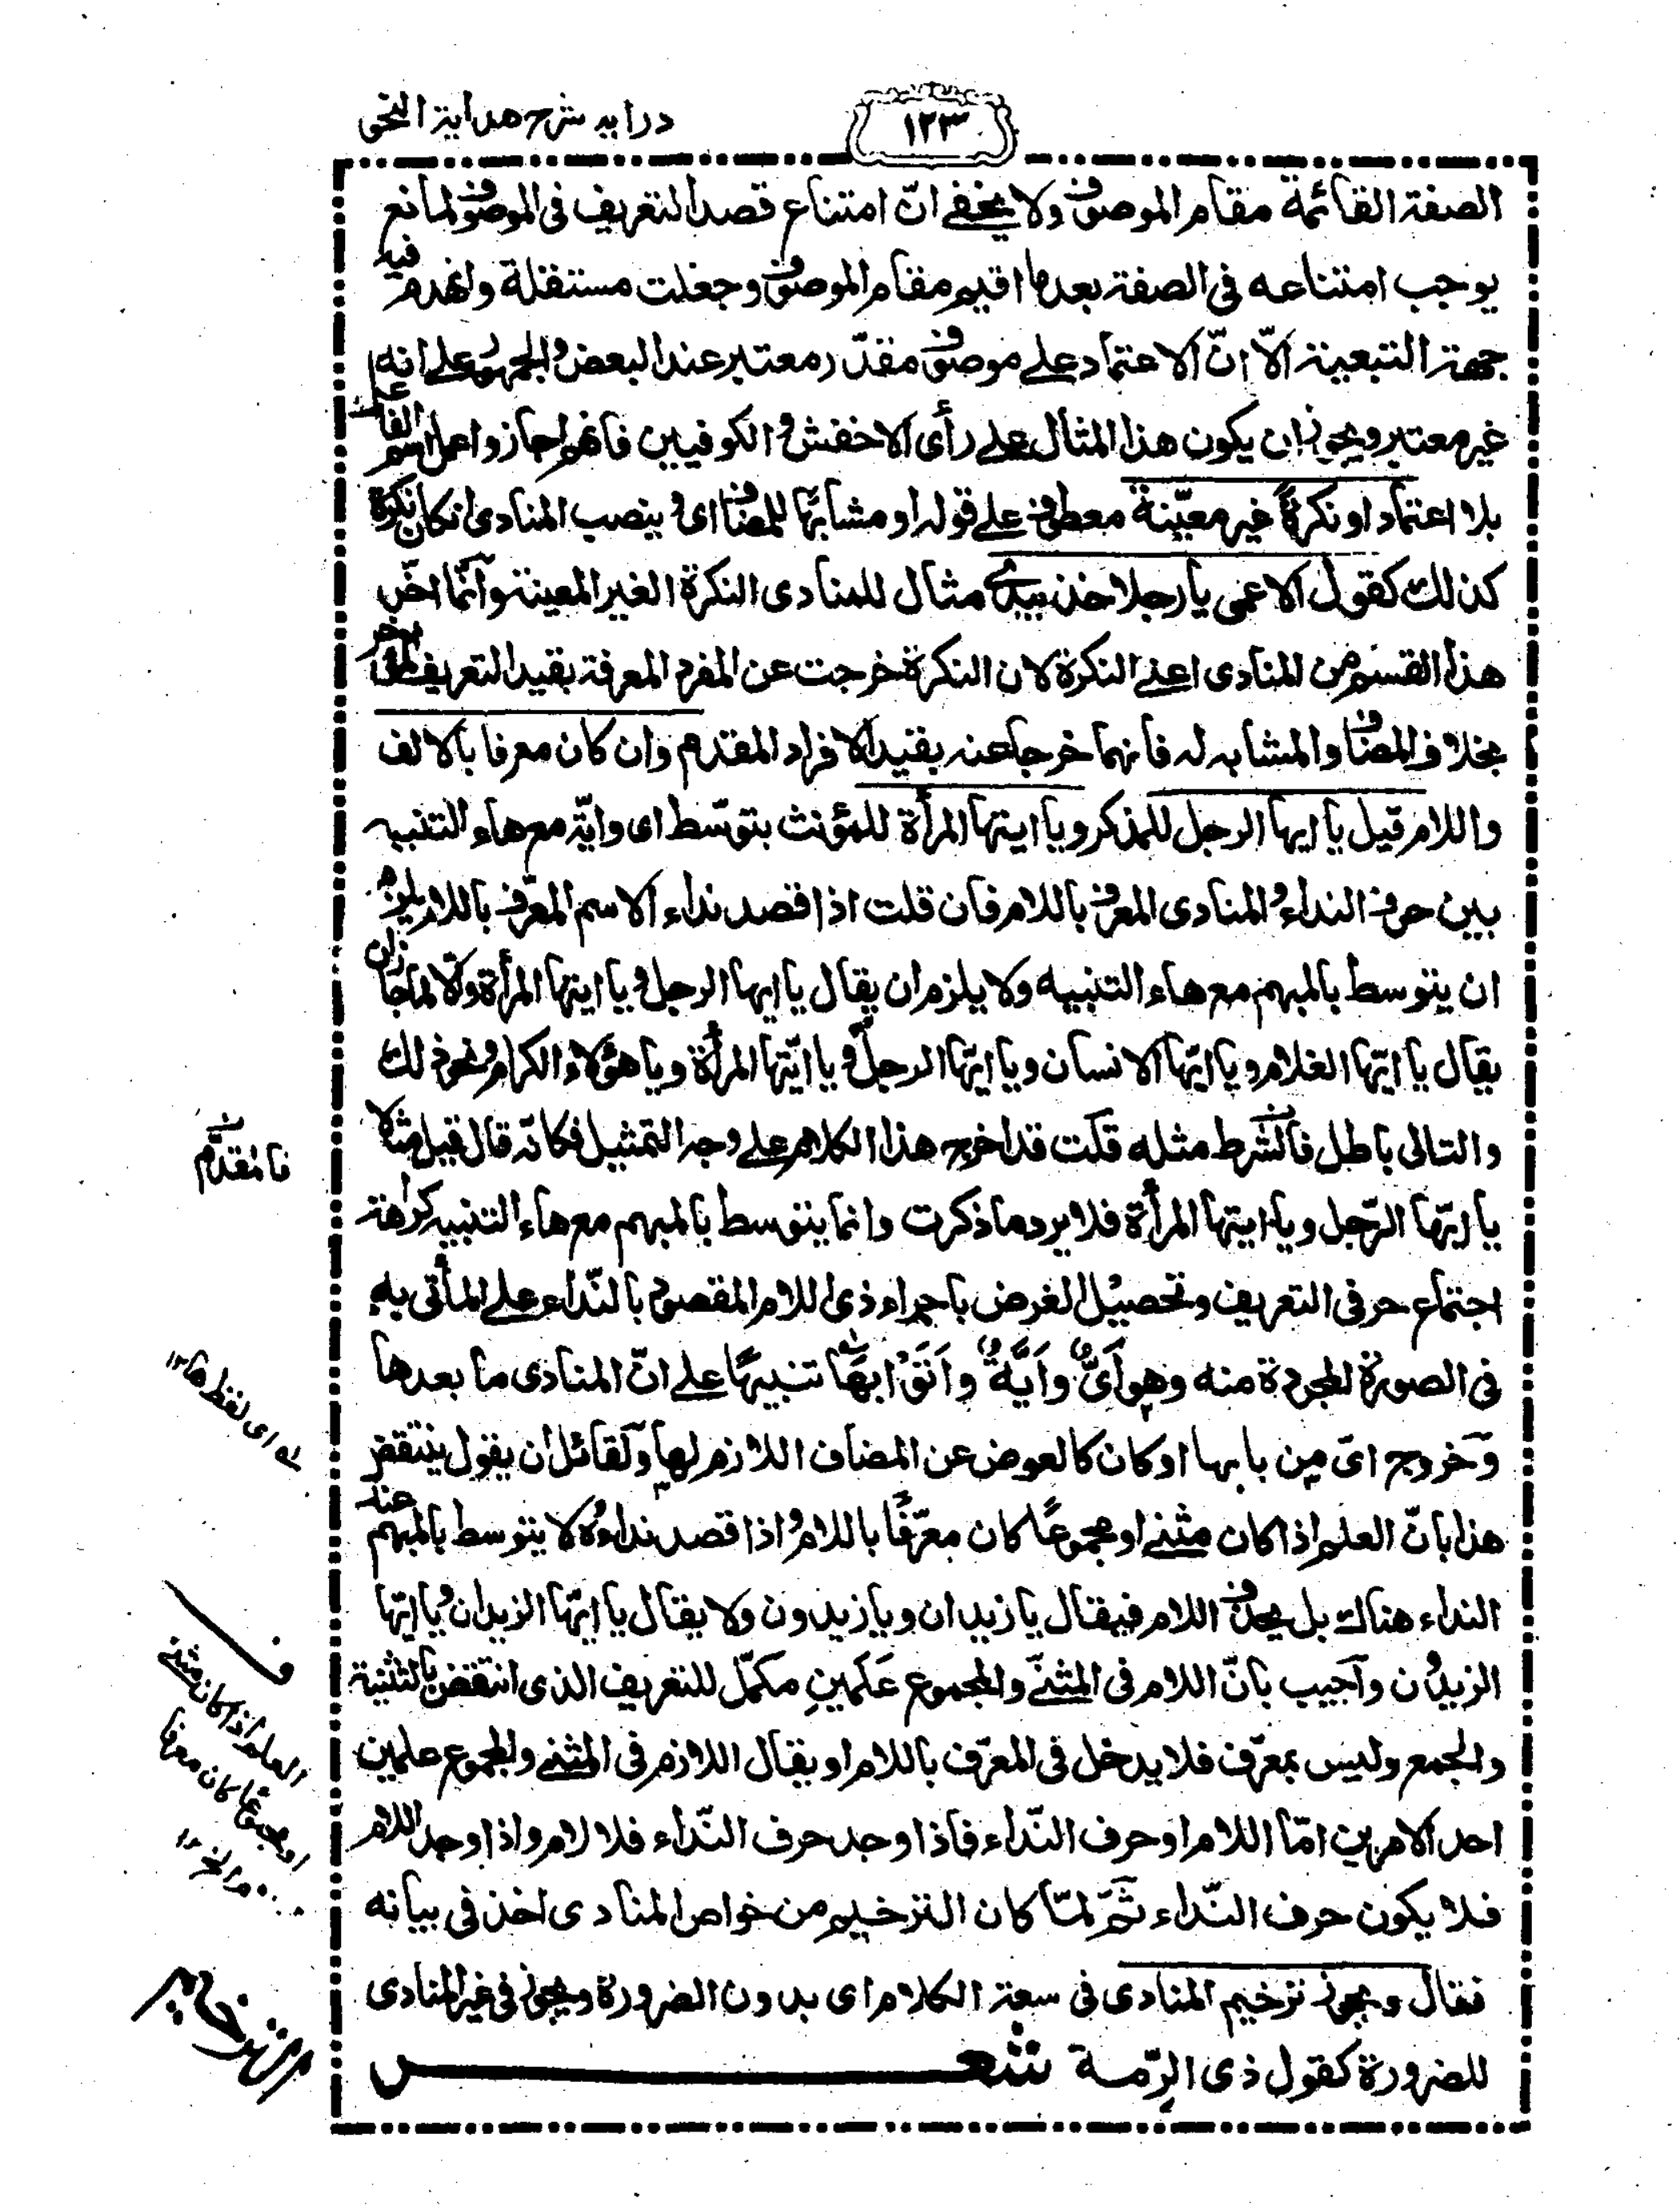 درايہ شرح هداية النحو
١٢٣
الصفة القائمة مقام الموصوف ولا يخفى انّ امتناع قصد التعريف فى الموصوف لمانع فيه
يوجب امتناعه فى الصفة بعدما اقيم مقام الموصوف وجعلت مستقلة وانهدم
جهة التبعية الّا انّ الاعتماد على موصوف مقدّر معتبر عند البعض والجمهور على انه
غير معتبر ويجوز ان يكون هذا المثال على رأى الاخفش والكوفيين فانهم اجازوا عمل اسم الفاعل
بلا اعتماد او نكرةً غير معيّنة معطوف على قوله او مشابهًا للمضاف اى وينصب المنادى ان كان نكرة
كذلك كقول الاعمى يا رجلا خذ بيدى مثال للمنادى النكرة الغير المعينة وانّما اخّر
هذا القسم من المنادى اعنى النكرة لان النكرة خرجت عن المفرد المعرفة بقيد التعريف المؤخر
بخلاف المضاف والمشابه له فانهما خرجا عنه بقيد الافراد المقدم وان كان معرفا بالالف
واللام قيل يا ايها الرجل للمذكر ويا ايتها المرأة للمؤنث بتوسّط اى واية مع هاء التنبيه
بين حرف النداء والمنادى المعرف باللام فان قلت اذا قصد نداء الاسم المعرّف باللام يلزم
ان يتوسط بالمبهم مع هاء التنبيه ولا يلزم ان يقال يا ايها الرجل ويا ايتها المرأة والّا لما جاز ان
يقال يا ايّها الغلام ويا ايّها الانسان ويا ايّها الرجل ويا ايّتها المرأة ويا هؤلاء الكرام ونحو ذلك
والتالى باطل فالشرط مثله قلت قد اخرج هذا الكلام على وجه التمثيل فكانّه قال قيل مثلا
يا ايّها الرّجل ويا ايتها المرأة فلا يرد ما ذكرت وانما يتوسط بالمبهم مع هاء التنبيه كراهة
اجتماع حرفى التعريف وتحصيل الغرض باجراء ذى اللام المقصود بالنّداء على المأتى به
فى الصورة المجردة منه وهو اَىٌّ واَيَّةٌ واَتَوْا بها تنبيهًا على انّ المنادى ما بعدها
وخروج اىّ من بابها او كان كالعوض عن المضاف اللازم لها ولقائل ان يقول ينتقض
هذا بانّ العلم اذا كان مثنى او مجموعًا كان معرّفًا باللام واذا قصد نداؤه لا يتوسط بالمبهم عند
النداء هناك بل يحذف اللام فيقال يا زيدان ويا زيدون ولا يقال يا ايّها الزيدان ويا ايّها
الزيدون واجيب بانّ اللام فى المثنّى والمجموع عَلَمينِ مكمّل للتعريف الذى انتقض بالتثنية
والجمع وليس بمعرّف فلا يدخل فى المعرّف باللام او يقال اللازم فى المثنى والمجموع علمين
احد الامرين امّا اللام او حرف النّداء فاذا وجد حرف النّداء فلا لام واذا وجد اللام
فلا يكون حرف النّداء ثمّ لمّا كان الترخيم من خواص المنادى اخذ فى بيانه
فقال ويجوز ترخيم المنادى فى سعة الكلام اى بدون الضرورة ويجوز فى غير المنادى
للضرورة كقول ذى الرّمة شعـــر
فالمقدّم
له اى لفظ ها ١٢
العلم اذا كان مثنى
او مجموعًا كان معرفا
الخ ١٢